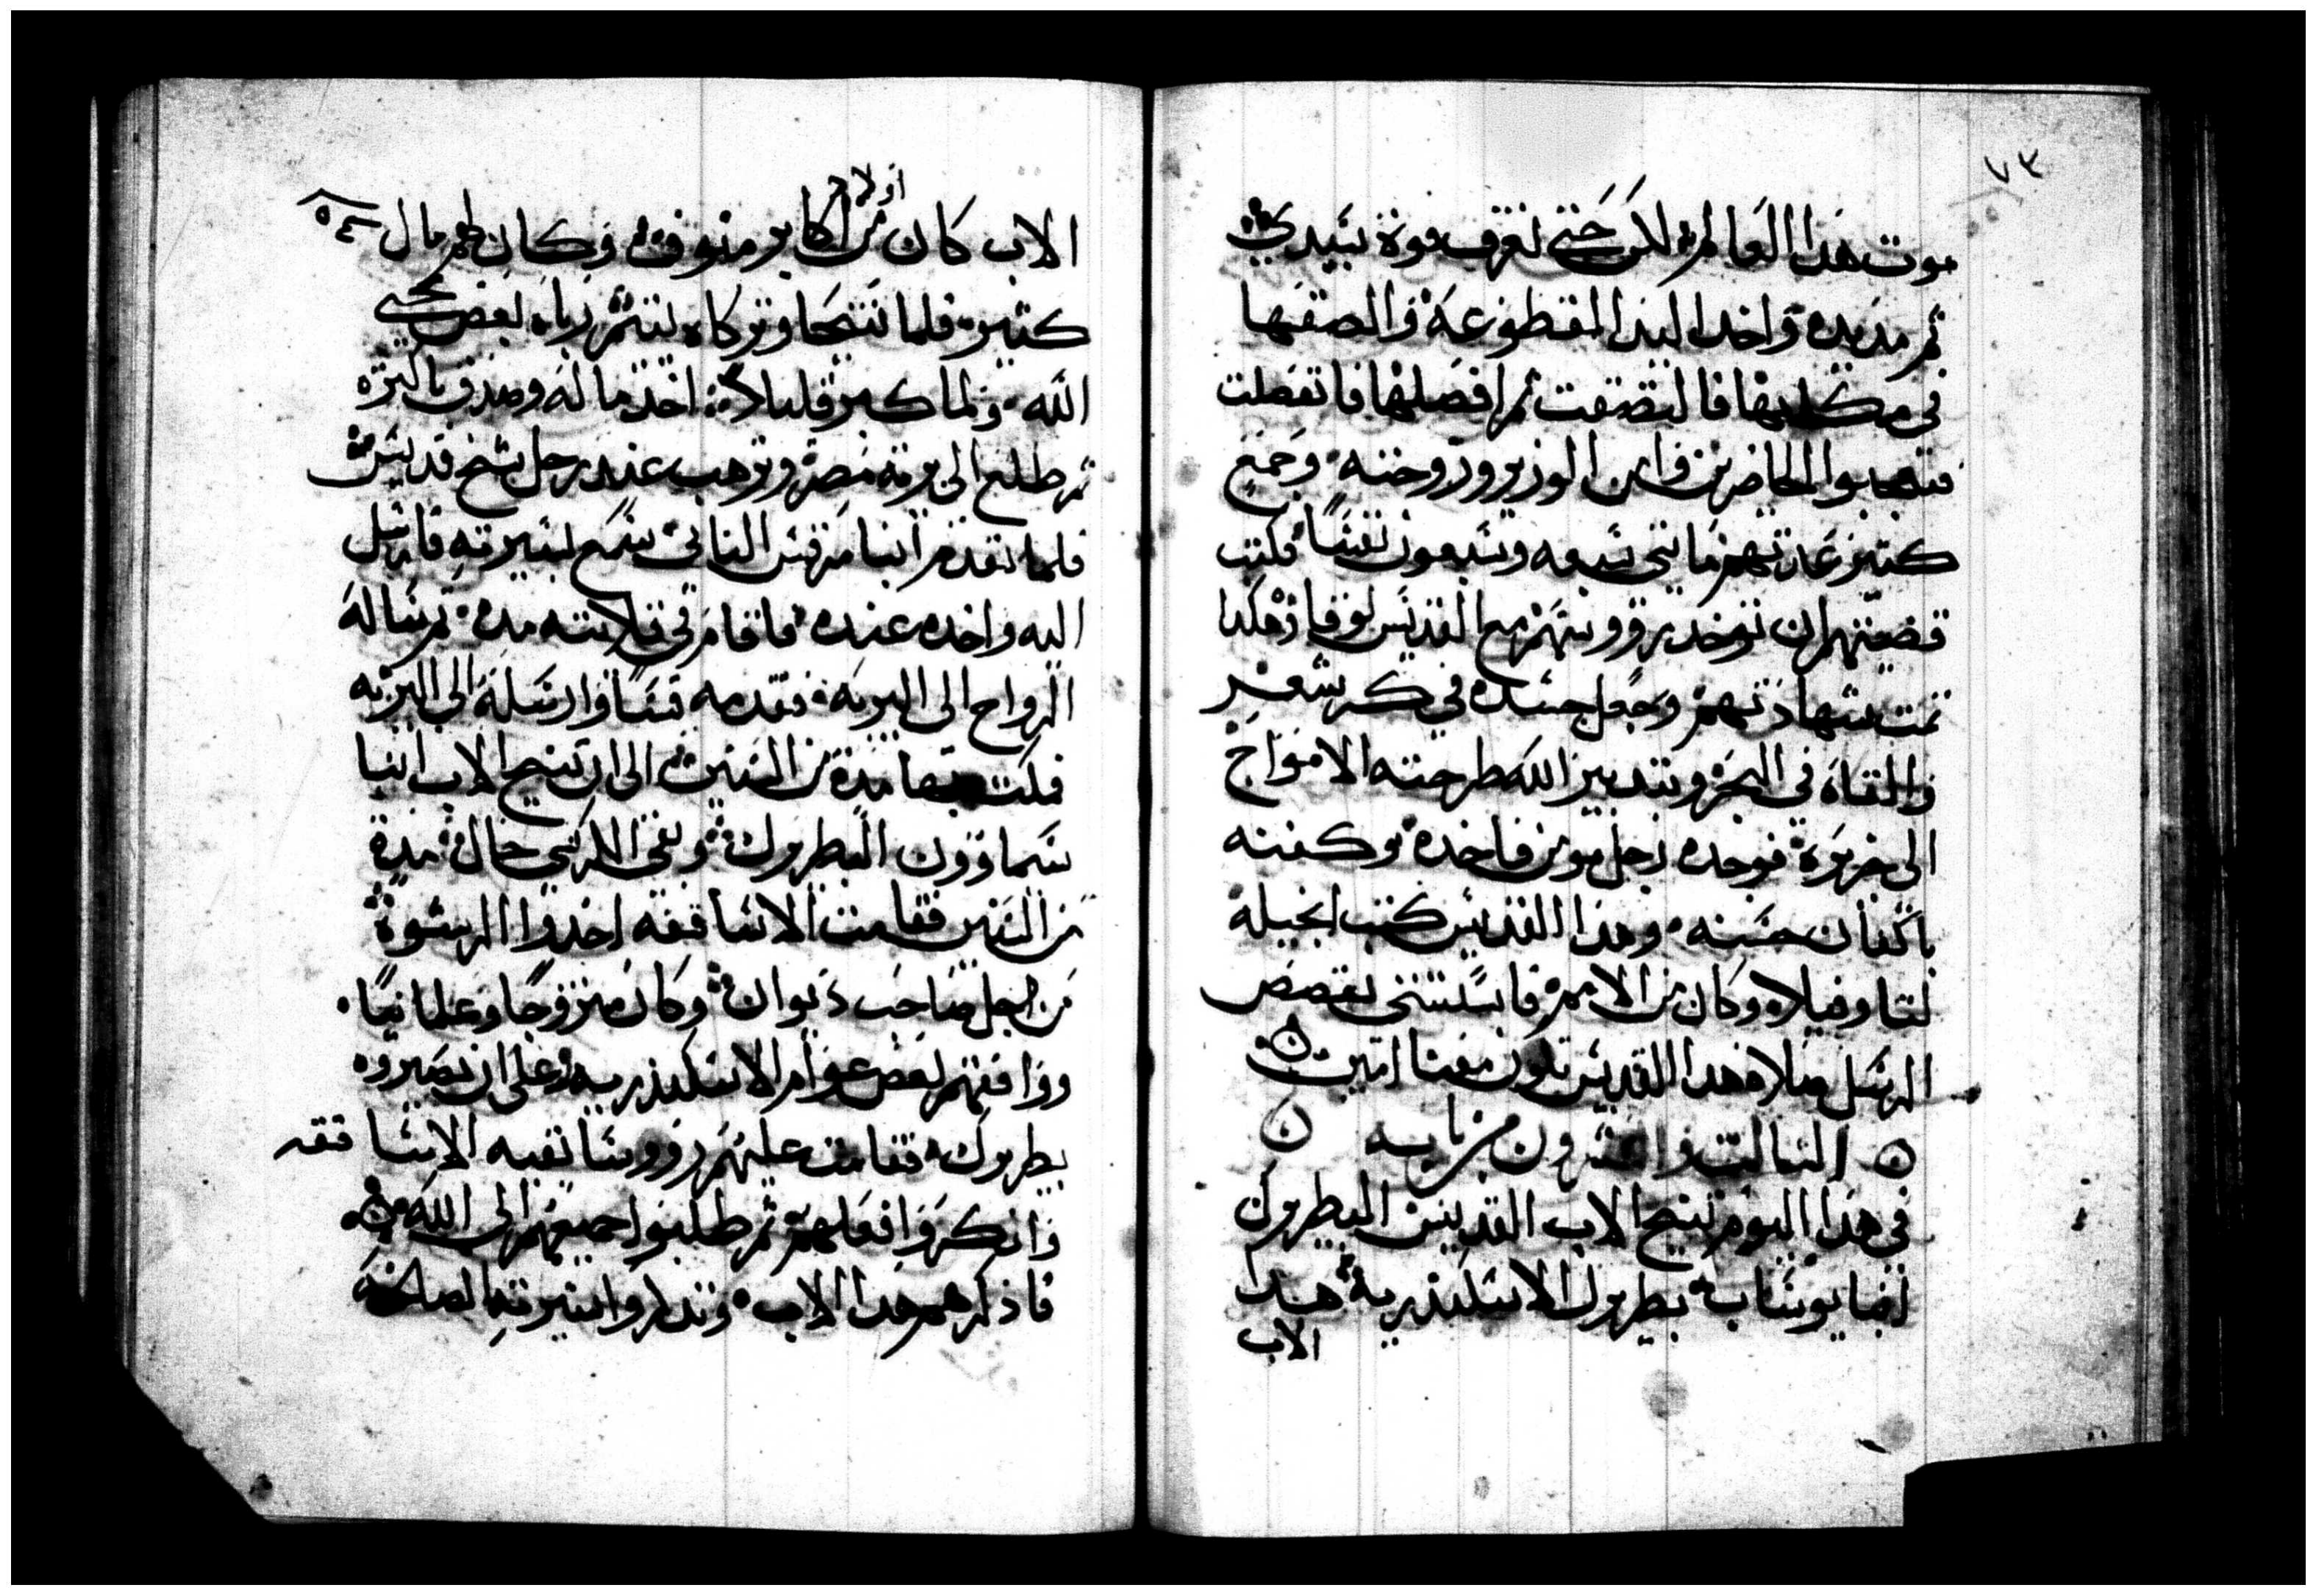 ٧٣
موت هذا العالم لكن حتى تعرف قوة سيدي
ثم مد يده واخد اليد المقطوعة والصقها
في مكانها فالتصقت ثم افصلها فاتفصلت
فتعجبوا الحاضرين وامن الوزير وزوجته وجمع
كتير عدتهم مايتي سبعه وسبعون نفسا فكتب
قضيتهم ان توخد رووسهم مع القديس لوقا وهكدا
تمت شهادتهم وجعل جسده في كيس شعر
والقاه في البحر وبتدبير الله طرحته الامواج
الى جزيرة فوجده رجل مومن فاخده وكفنه
باكفان حسنه وهذا القديس كتب انجيله
لتاوفيلا وكان من الامم فابتدى بقصص
الرسل صلاة هدا القديس تكون معنا امين
التالت والعشرون من بابه
في هذا اليوم تنيح الاب القديس البطريرك
انبا يوساب بطريرك الاسكندرية هدا
الاب
٥٤
اولاد
الاب كان من اكابر منوف وكان لهم مال
كتير فلما تنيحا وتركاه يتيم رباه بعض محبي
الله ولما كبر قليلا اخد ماله وصدق باكتره
ثم طلع الى برية مصر وترهب عند رجل شيخ قديس
فلما تقدم انبا مرقس التاني سمع بسيرته فارسل
اليه واخده عنده فاقام في قلايته مدة ثم ساله
الرواح الى البرية فقدمه قسا وارسله الى البريه
فمكت بها مدة من السنين الى ان تنيح الاب انبا
سماوون البطريرك وبقي الكرسي خال مدة
من السنين فقامت الاساقفه اخدوا الرشوة
من اجل صاحب ديوان وكان متزوجا وعلمانيا
ووافقهم بعض عوام الاسكندرية على ان يصيروه
بطريرك فقامت عليهم رووسا بقيه الاساقفه
وانكروا فعلهم ثم طلبوا جميعهم الى الله
فاذكرهم هدا الاب وتداكروا سيرته الصالحة